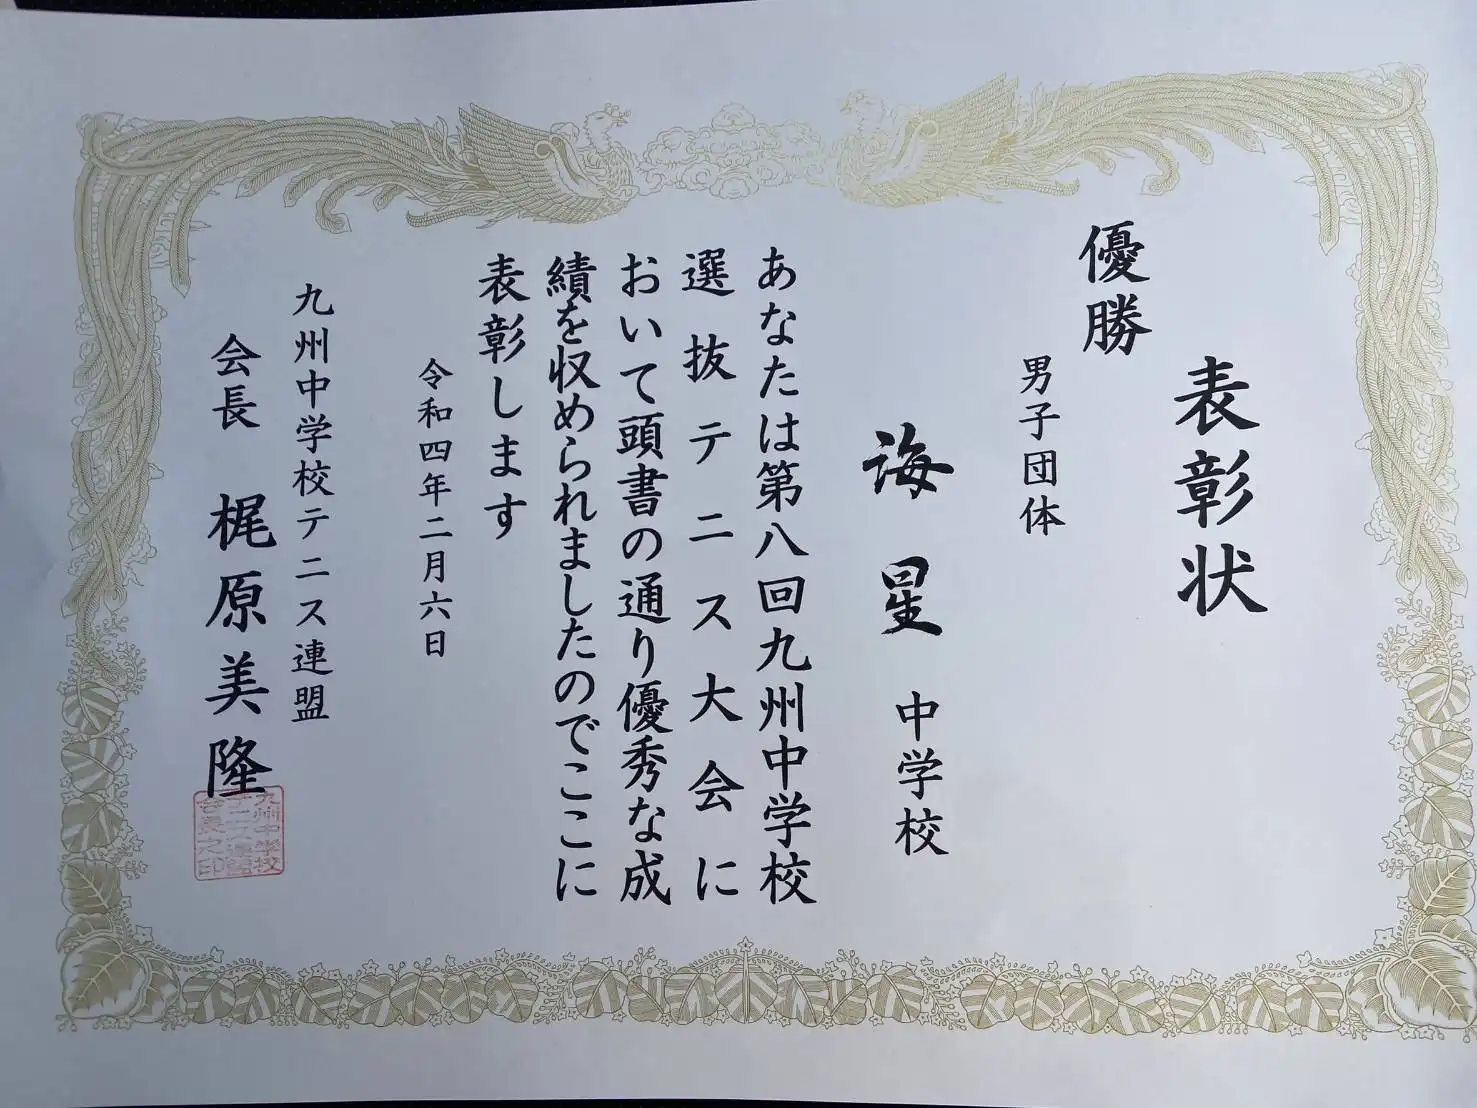 表彰状
優勝
男子団体
海星 中学校
あなたは第八回九州中学校
選抜テニス大会に
おいて頭書の通り優秀な成
績を収められましたのでここに
表彰します
令和四年二月六日
九州中学校テニス連盟
会長 梶原美隆
九州中学校
テニス連盟
会長之印